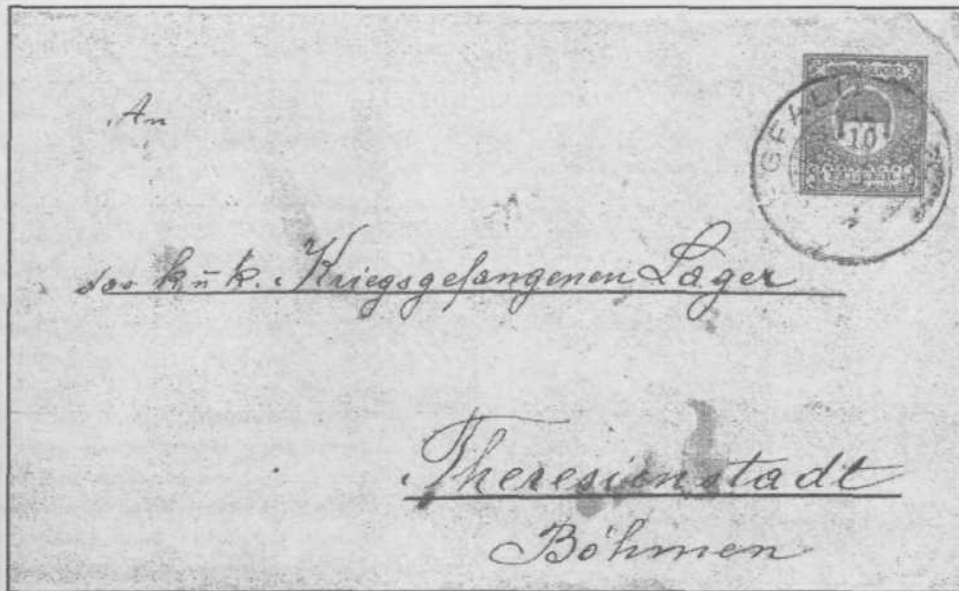 An
das k u k. Kriegsgefangenen Lager
Theresienstadt
Böhmen
10